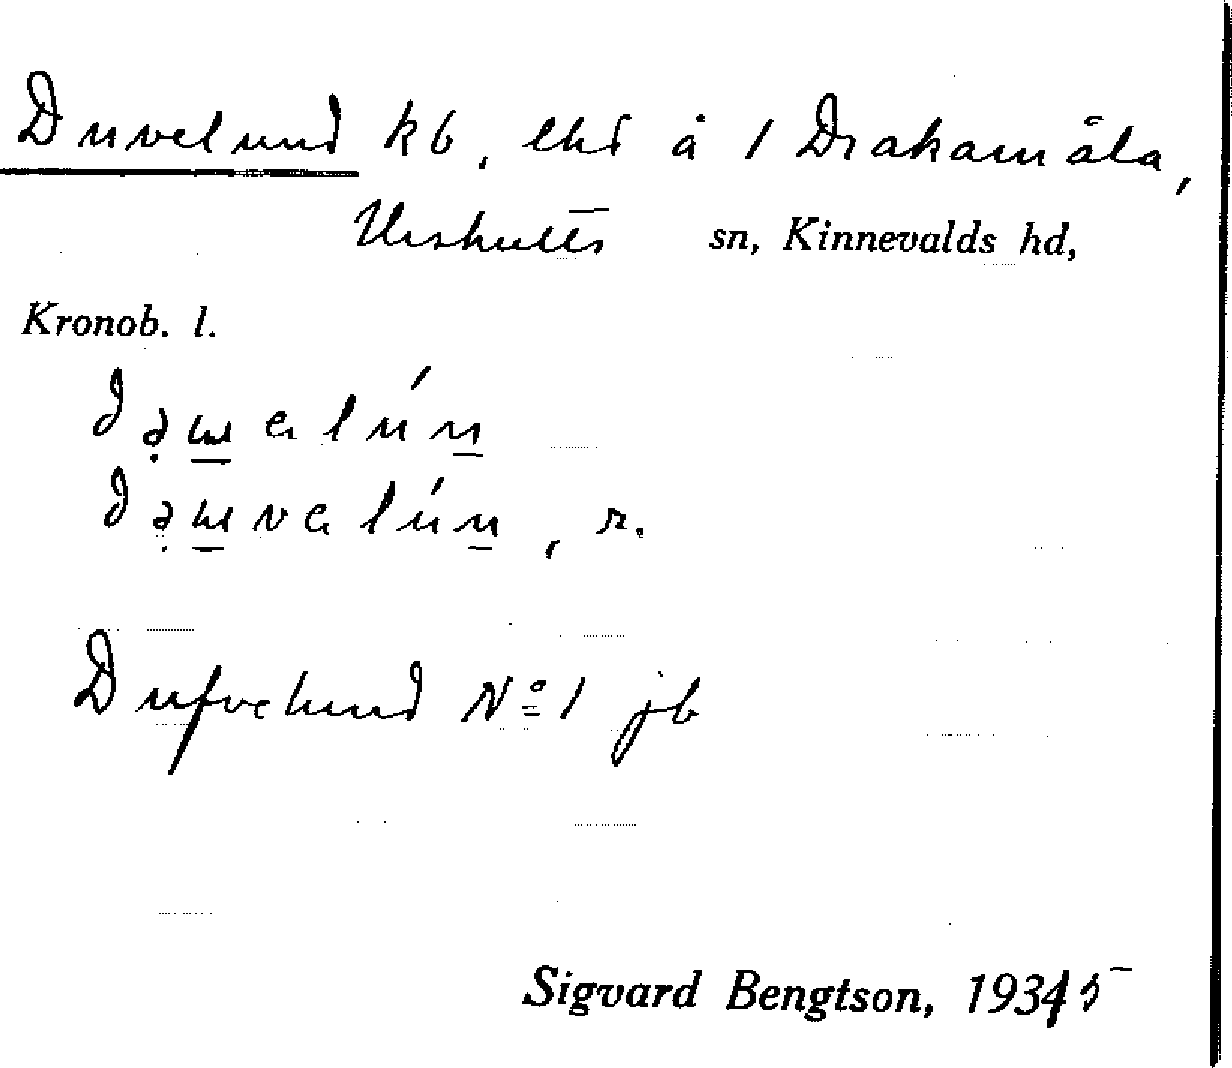 Duvelund kb, lhd å 1 Drakamåla,
Urshults sn, Kinnevalds hd,
Kronob. l.
Dufvelund No 1 jb
Sigvard Bengtson, 1935